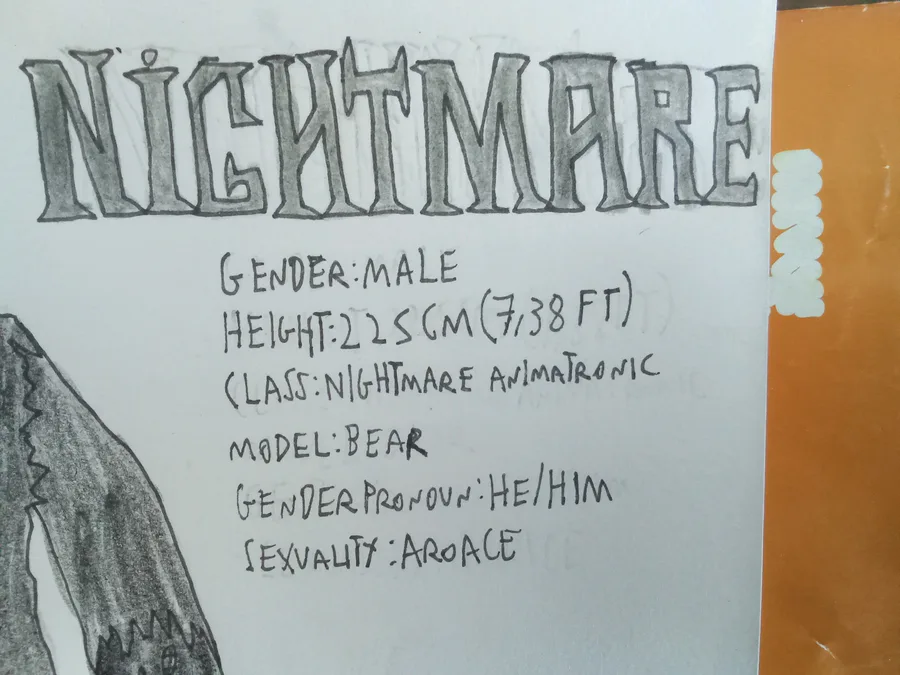 NiGHTMARE
GENDER:MALE
HEIGHT:225CM(7,38 FT)
CLASS:NIGHTMARE ANIMATRONIC
MODEL:BEAR
GENDERPRONOUN:HE/HIM
SEXUALITY:AROACE